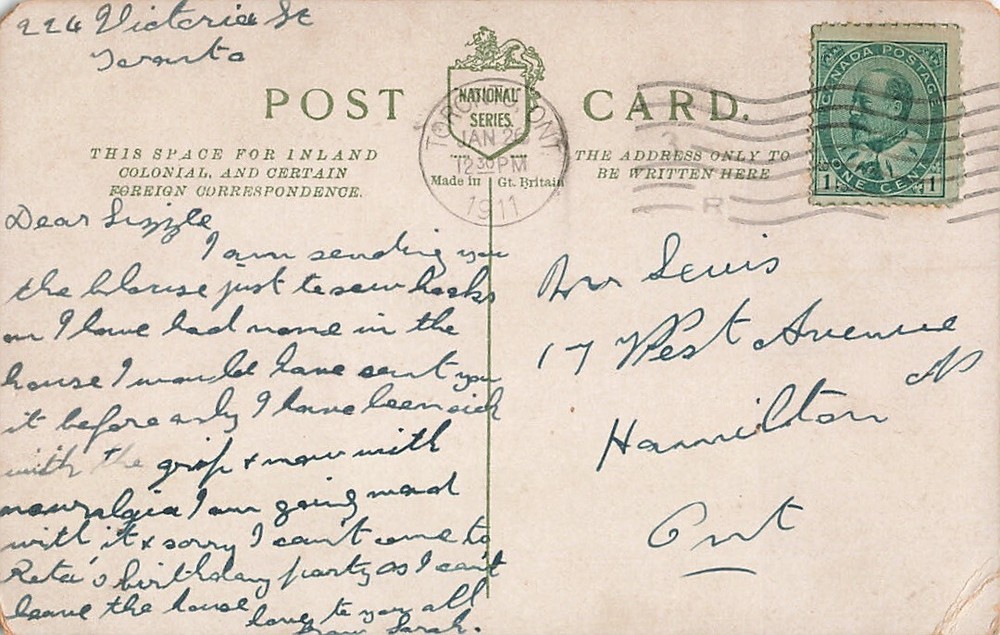 224 Victoria St
Toronto
POST CARD.
NATIONAL
SERIES
TORONTO, ONT.
JAN 26
12 30 PM
1911
Made in Gt. Britain
CANADA POSTAGE
1 ONE CENT 1
THIS SPACE FOR INLAND
COLONIAL, AND CERTAIN
FOREIGN CORRESPONDENCE.
THE ADDRESS ONLY TO
BE WRITTEN HERE
Dear Lizzie
I am sending you
the blouse just to sew hooks
on I have had none in the
house I would have sent you
it before only I have been sick
with the grip & now with
I am going mad
with it & sorry I can't come to
Reta's birthday party as I can't
leave the house
love to you all
from Sarah.
Mrs Lewis
17 West Avenue
N
Hamilton
Ont